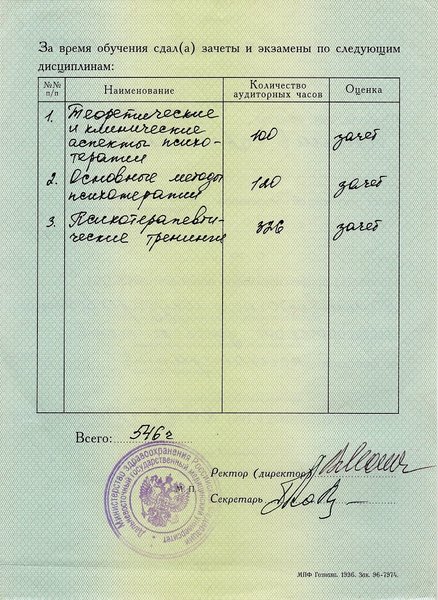 За время обучения сдал(а) зачеты и экзамены по следующим
дисциплинам:
№№ п/п Наименование Количество аудиторных часов Оценка
1. Теоретические
и клинические
аспекты психо-
терапии 100 зачет
2. Основные методы
психотерапии 120 зачет
3. Психотерапевти-
ческие тренинги 326 зачет
Всего: 546 ч
Министерство здравоохранения Российской Федерации
Дальневосточный государственный медицинский университет
М П
Ректор (директор)
Секретарь
МПФ Гознака. 1996. Зак. 96-7974.